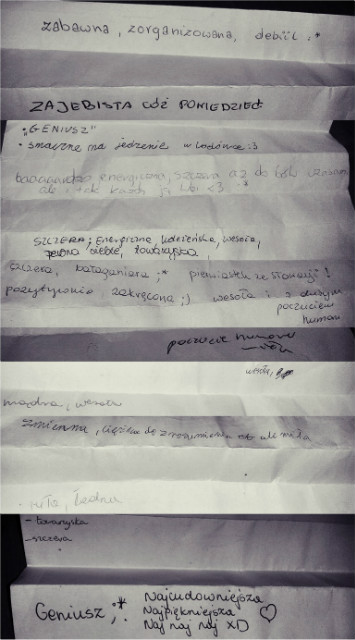 zabawna, zorganizowana, debil :*
ZAJEBISTA CÓŻ POWIEDZIEĆ
"GENIUSZ"
• smaczne ma jedzenie w lodówce :3
baaaardzo energiczna, szczera aż do bólu czasami
ale i tak każdy ją lubi <3 :*
SZCZERA, energiczna, koleżeńska, wesoła,
pewna siebie, towarzyska,
szczera, bałaganiara :* pierwiastek ze
pozytywnie zakręcona ;) wesoła i z dużym
poczuciem
humoru
poczucie humoru
wesoła,
mądra, wesoła
zmienna, ciężka do zrozumienia ale miła
miła, ładna
- towarzyska
- szczera
Geniusz ;* Najcudowniejsza
Najpiękniejsza
Naj naj naj XD